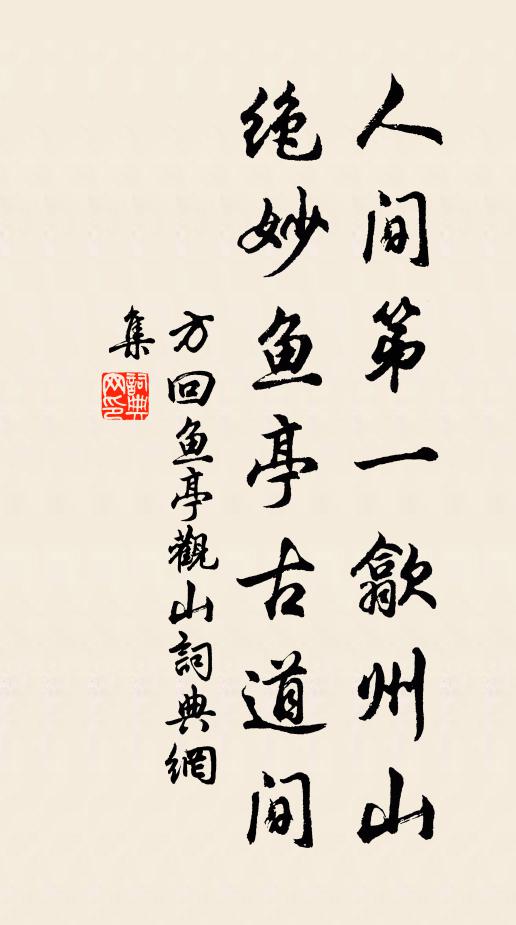 人间第一歙州山
绝妙鱼亭古道间
方回鱼亭觀山詞典網
集
詞典网印